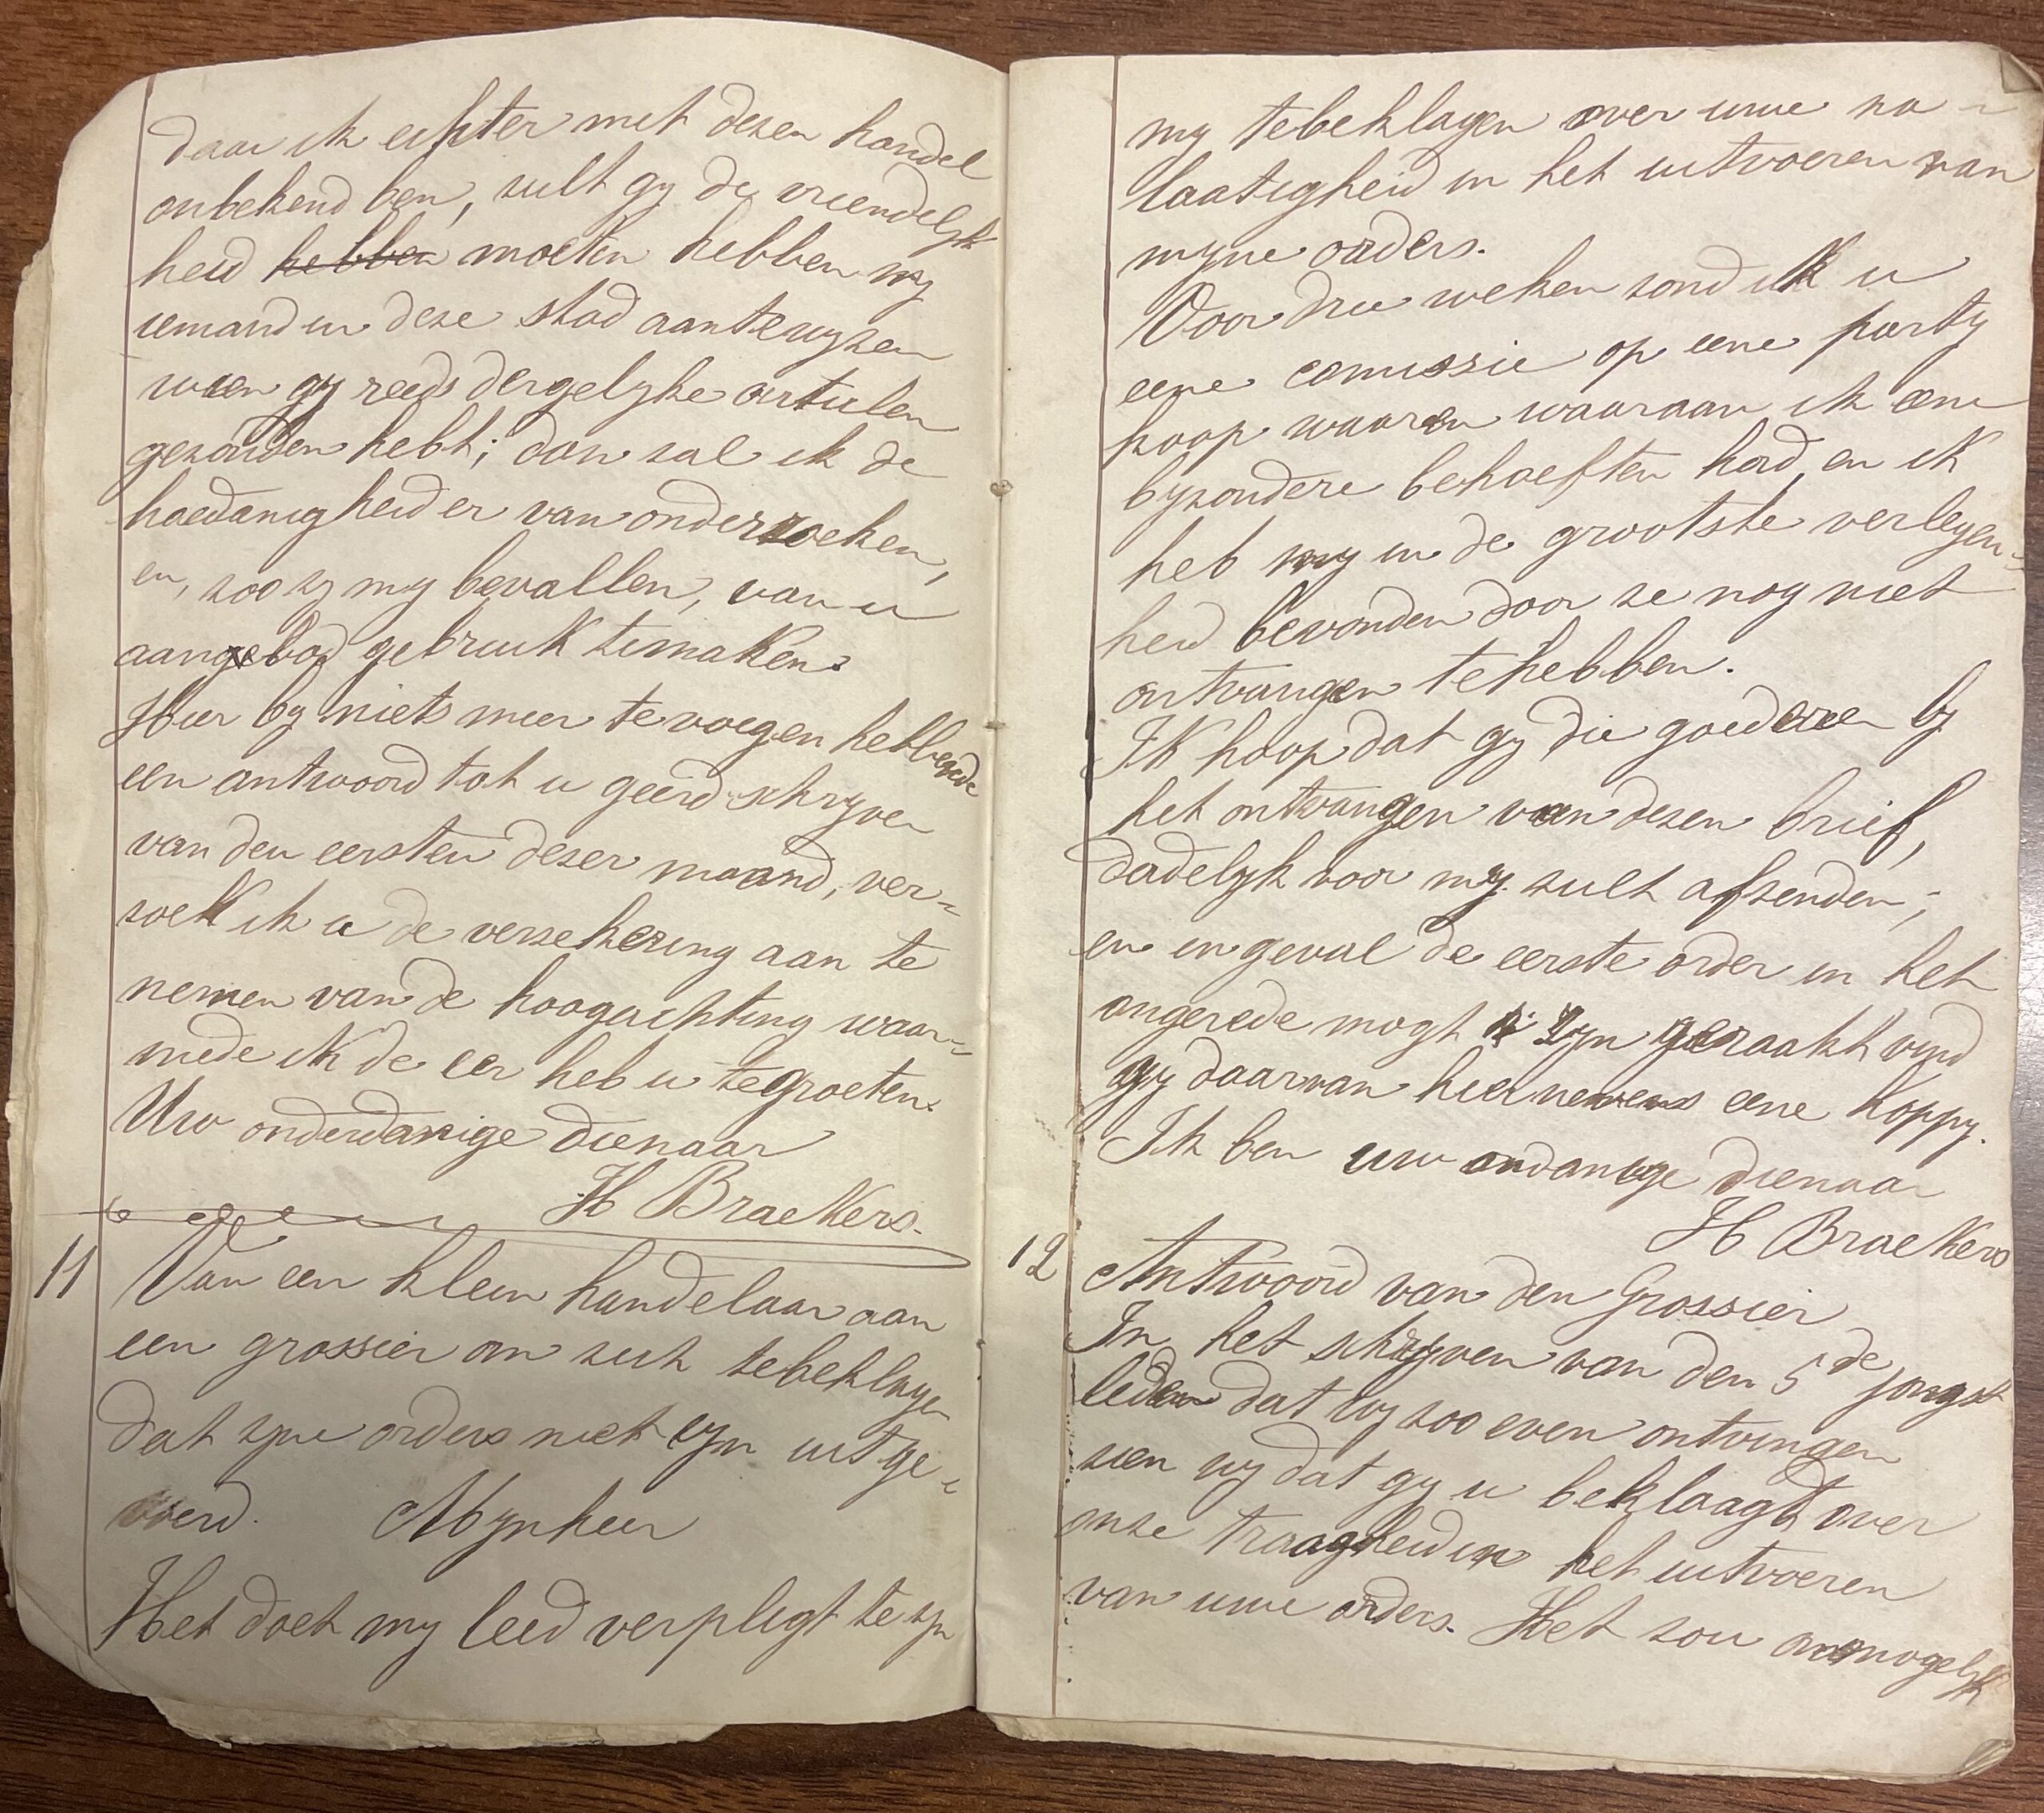 daar ik echter met dezen handel
onbekend ben, zult gy de vriendelyk
heid hebben moeten hebben my
iemand in deze stad aantewyzen
wien gy reeds dergelyke artielen
gezonden hebt; dan zal ik de
hoedanigheid er van onderzoeken,
en, zoo zy my bevallen, van u
aangebod gebruik temaken.
Hier by niets meer te voegen hebbende
een antwoord tot u geëerd schryven
van den eersten dezer maand, ver=
zoek ik u de verzekering aan te
nemen van de hoogachting waar=
mede ik de eer heb u tegroeten.
Uw onderdanige dienaar
H Braekers.
11 Van een klein handelaar aan
een grossier om zich tebeklagen
dat zyne orders niet zyn uitge=
voerd. Mynheer
Het doet my leed verpligt te zyn
my tebeklagen over uwe na=
laatigheid in het uitvoeren van
myne orders.
Voor drie weken zond ik u
eene comissie op eene party
koop waaren waaraan ik eene
byzondere behoeften had, en ik
heb my in de grootste verlegen=
heid bevonden door ze nog niet
ontvangen tehebben.
Ik hoop dat gy die goederen by
het ontvangen van dezen brief,
dadelyk voor my zult afzenden;
en ingeval de eerste order in het
ongerede mogt zyn geraakt vind
gy daarvan hiernevens eene Koppy.
Ik ben uw ondanige dienaar
H Braekers
12 Antwoord van den Grossier
In het schryven van den 5de jongst
leden dat wy zoo even ontvingen
zien wy dat gy u beklaagt over
onze traagheid in het uitvoeren
van uwe orders. Het zou onmogelyk